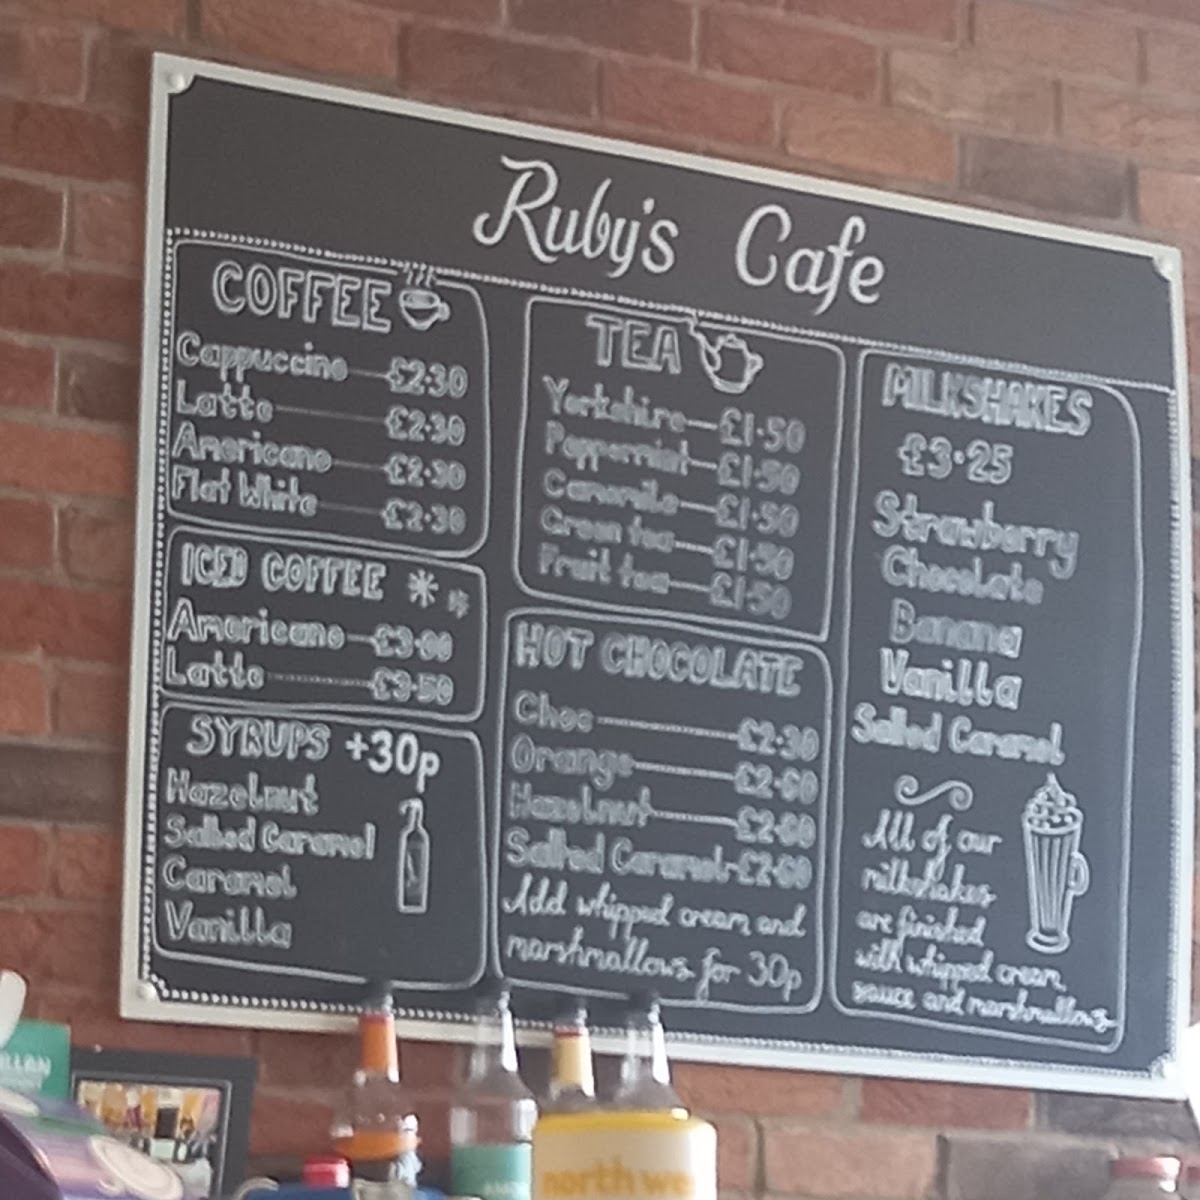 Ruby's Cafe
COFFEE
Cappuccino £2.30
Latte £2.30
Americano £2.30
Flat White £2.30
ICED COFFEE
Americano £3.00
Latte £3.50
SYRUPS +30p
Hazelnut
Salted Caramel
Caramel
Vanilla
TEA
Yorkshire £1.50
Peppermint £1.50
Camomile £1.50
Green tea £1.50
Fruit tea £1.50
HOT CHOCOLATE
Choc £2.30
Orange £2.60
Hazelnut £2.60
Salted Caramel £2.60
Add whipped cream and
marshmallows for 30p
MILKSHAKES
£3.25
Strawberry
Chocolate
Banana
Vanilla
Salted Caramel
All of our
milkshakes
are finished
with whipped cream,
sauce and marshmallows
north we